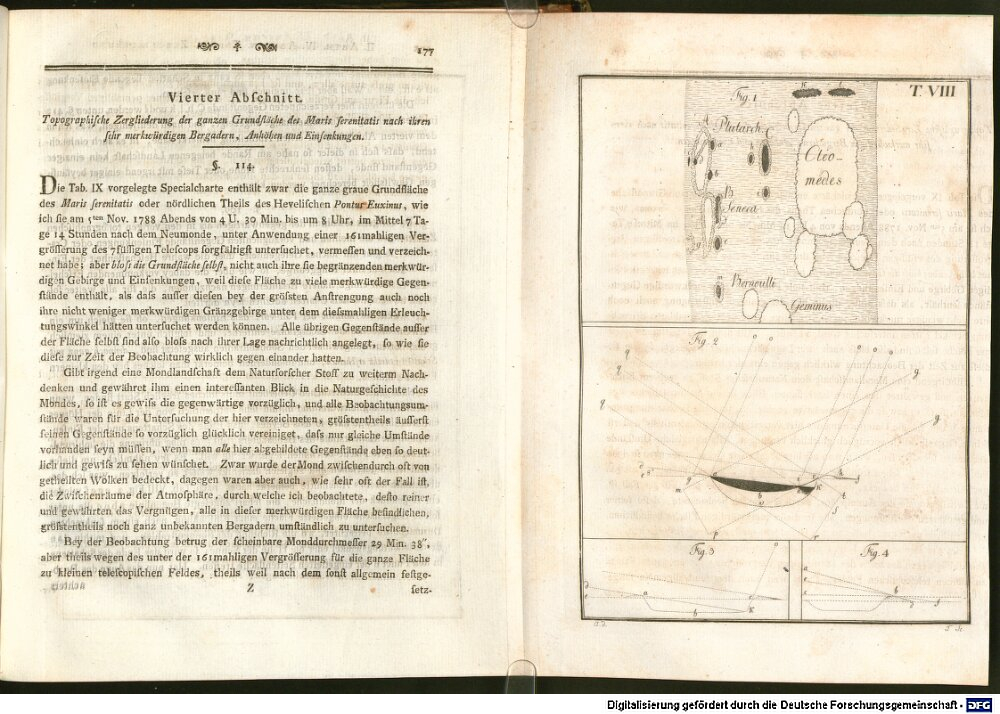 177
Vierter Abſchnitt.
Topographiſche Zergliederung der ganzen Grundfläche des Maris ſerenitatis nach ihren
ſehr merkwürdigen Bergadern, Anhöhen und Einſenkungen.
§. 114.
Die Tab. IX vorgelegte Specialcharte enthält zwar die ganze graue Grundfläche
des Maris ſerenitatis oder nördlichen Theils des Heveliſchen Pontus Euxinus, wie
ich ſie am 5ten Nov. 1788 Abends von 4 U. 30 Min. bis um 8 Uhr, im Mittel 7 Ta-
ge 14 Stunden nach dem Neumonde, unter Anwendung einer 161mahligen Ver-
gröſserung des 7füſſigen Teleſcops ſorgfältigſt unterſuchet, vermeſſen und verzeich-
net habe; aber bloſs die Grundfläche ſelbſt, nicht auch ihre ſie begränzenden merkwür-
digen Gebirge und Einſenkungen, weil dieſe Fläche zu viele merkwürdige Gegen-
ſtände enthält, als daſs auſſer dieſen bey der gröſsten Anſtrengung auch noch
ihre nicht weniger merkwürdigen Gränzgebirge unter dem dieſsmahligen Erleuch-
tungswinkel hätten unterſuchet werden können. Alle übrigen Gegenſtände auſſer
der Fläche ſelbſt ſind alſo bloſs nach ihrer Lage nachrichtlich angelegt, ſo wie ſie
dieſe zur Zeit der Beobachtung wirklich gegen einander hatten.
Gibt irgend eine Mondlandſchaft dem Naturforſcher Stoff zu weiterm Nach-
denken und gewähret ihm einen intereſſanten Blick in die Naturgeſchichte des
Mondes, ſo iſt es gewiſs die gegenwärtige vorzüglich, und alle Beobachtungsum-
ſtände waren für die Unterſuchung der hier verzeichneten, gröſstentheils äuſſerſt
feinen Gegenſtände ſo vorzüglich glücklich vereiniget, daſs nur gleiche Umſtände
vorhanden ſeyn müſſen, wenn man alle hier abgebildete Gegenſtände eben ſo deut-
lich und gewiſs zu ſehen wünſchet. Zwar wurde der Mond zwiſchendurch oft von
getheilten Wolken bedeckt, dagegen waren aber auch, wie ſehr oft der Fall iſt,
die Zwiſchenräume der Atmoſphäre, durch welche ich beobachtete, deſto reiner
und gewährten das Vergnügen, alle in dieſer merkwürdigen Fläche befindlichen,
gröſstentheils noch ganz unbekannten Bergadern umſtändlich zu unterſuchen.
Bey der Beobachtung betrug der ſcheinbare Monddurchmeſſer 29 Min. 38",
aber theils wegen des unter der 161mahligen Vergröſſerung für die ganze Fläche
zu kleinen teleſcopiſchen Feldes, theils weil nach dem ſonſt allgemein feſtge-
Z
ſetz-
T. VIII
Fig. 1
A
Plutarch
C
Cleo-
medes
B
Seneca
Bernoulli
Geminus
Fig. 2
Fig. 3
Fig. 4
Digitalisierung gefördert durch die Deutsche Forschungsgemeinschaft - DFG